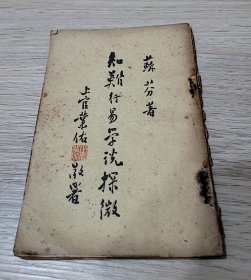 蘇芬著
知難行易學說探微
上官業佑敬署